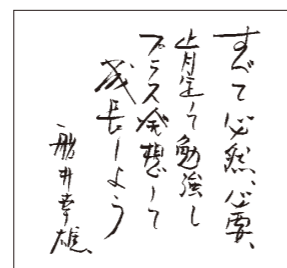 すべて必然、必要、
止目生して勉強し
プラス発想して
成長しよう
船井幸雄